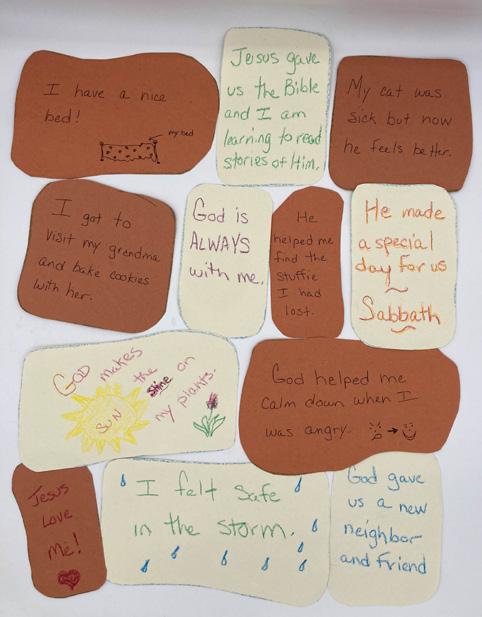 I have a nice
bed!
my bed
Jesus gave
us the Bible
and I am
learning to read
stories of Him.
My cat was
sick but now
he feels better.
I got to
visit my grandma
and bake cookies
with her.
God is
ALWAYS
with me.
He
helped me
find the
stuffie
I had
lost.
He made
a special
day for us
~
Sabbath
GOD makes
the
SUN
shine on
my plants.
God helped me
calm down when I
was angry.
Jesus
Love
me!
I felt safe
in the storm.
God gave
us a new
neighbor
and friend